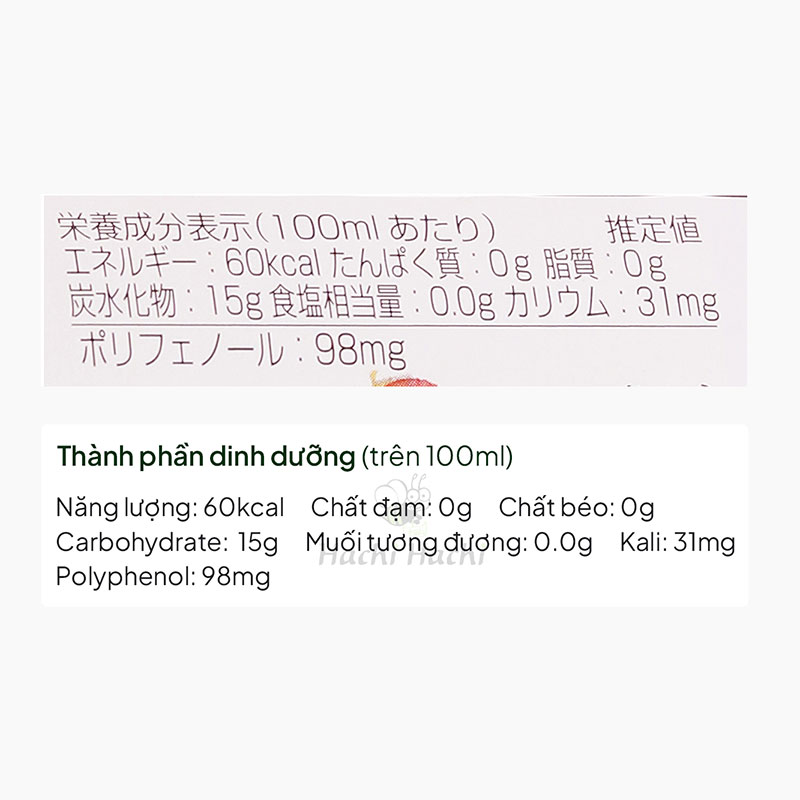 栄養成分表示(100mlあたり) 推定値
エネルギー:60kcal たんぱく質:0g 脂質:0g
炭水化物:15g 食塩相当量:0.0g カリウム:31mg
ポリフェノール:98mg
Thành phần dinh dưỡng (trên 100ml)
Năng lượng: 60kcal Chất đạm: 0g Chất béo: 0g
Carbohydrate: 15g Muối tương đương: 0.0g Kali: 31mg
Hachi Hachi
Polyphenol: 98mg